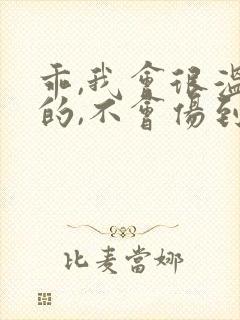 乖,我會很溫
的,不會傷到
比麦當娜